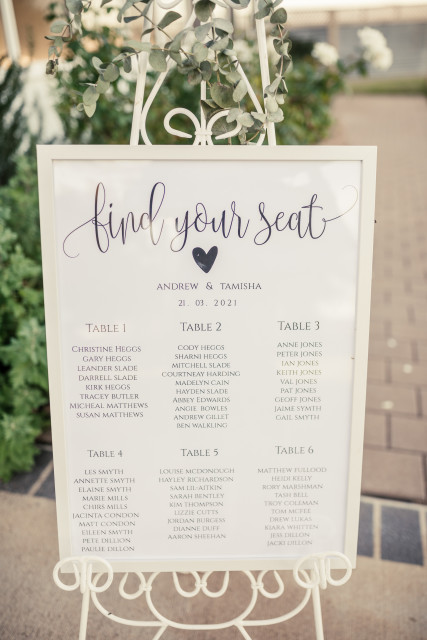 find your seat
ANDREW & TAMISHA
21. 03. 2021
TABLE 1
CHRISTINE HEGGS
GARY HEGGS
LEANDER SLADE
DARRELL SLADE
KIRK HEGGS
TRACEY BUTLER
MICHEAL MATTHEWS
SUSAN MATTHEWS
TABLE 2
CODY HEGGS
SHARNI HEGGS
MITCHELL SLADE
COURTNEAY HARDING
MADELYN CAIN
HAYDEN SLADE
ABBEY EDWARDS
ANGIE BOWLES
ANDREW GILLET
BEN WALKLING
TABLE 3
ANNE JONES
PETER JONES
IAN JONES
KEITH JONES
VAL JONES
PAT JONES
GEOFF JONES
JAIME SYMTH
GAIL SMYTH
TABLE 4
LES SMYTH
ANNETTE SMYTH
ELAINE SMYTH
MARIE MILLS
CHRIS MILLS
JACINTA CONDON
MATT CONDON
EILEEN SMYTH
PETE DILLON
PAULIE DILLON
TABLE 5
LOUISE MCDONOUGH
HAYLEY RICHARDSON
SAM LILAITKIN
SARAH BENTLEY
KIM THOMPSON
LIZZIE CUTTS
JORDAN BURGESS
DIANNE DUFF
AARON SHEEHAN
TABLE 6
MATTHEW FULLOOD
HEIDI KELLY
RORY MARSHMAN
TASH BELL
TROY COLEMAN
TOM MCFEE
DREW LUKAS
KIARA WHITTEN
JESS DILLON
JACKI DILLON